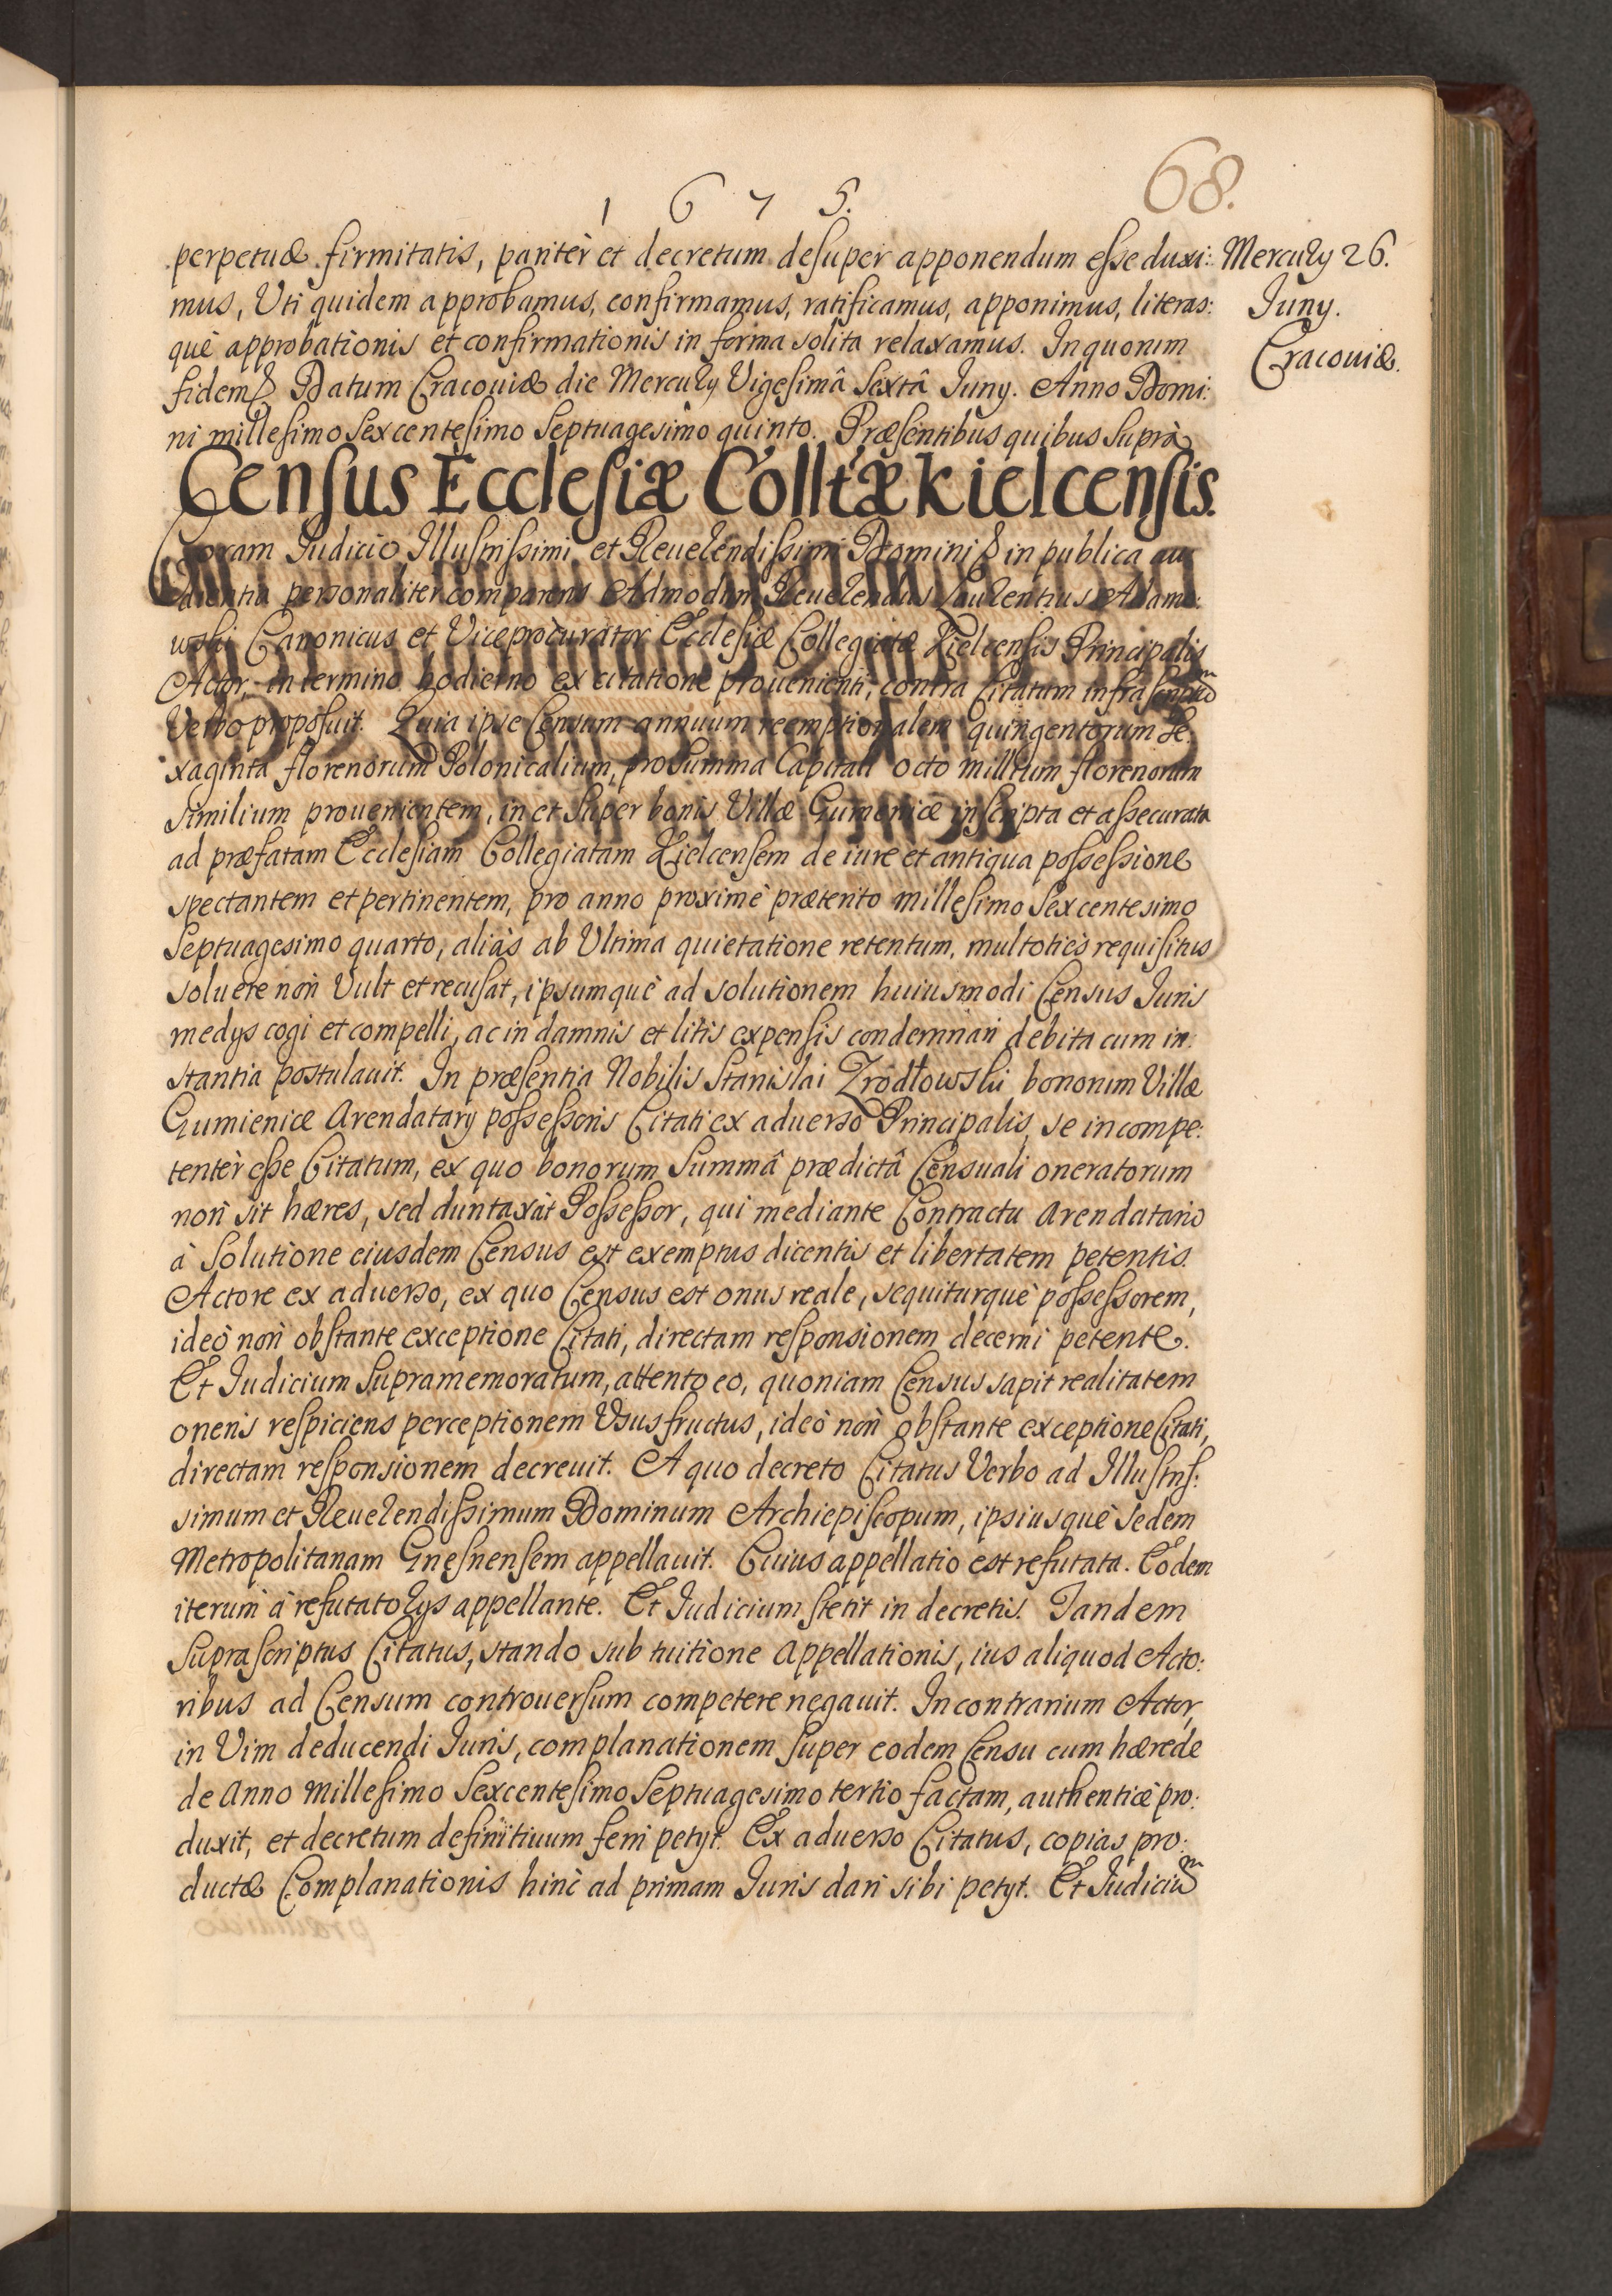 68.
1 6 7 5.
perpetuæ firmitatis, paritèr et decretum desuper apponendum esse duxi:
mus, Uti quidem approbamus, confirmamus, ratificamus, apponimus, literas:
què approbationis et confirmationis in forma solita relaxamus. In quorum
fidem Datum Cracouiæ die Mercurÿ Vigesimâ Sextâ Juny. Anno Domi:
ni millesimo Sexcentesimo Septuagesimo quinto. Præsentibus quibus Suprà
Mercurÿ 26.
Juny.
Cracouiæ.
Census Ecclesiæ Colltæ Kielcensis.
Coram Judicio Illustrissimi et Reuerendissimi Domini in publica au
dientia personaliter comparens Admodum Reuerendus Laurentius Adamo:
wski Canonicus et Viceprocurator Ecclesiæ Collegiatæ Kielcensis Principalis
Actor, in termino hodierno ex citatione proueniente, contra Citatum infrascriptũ
Verbo proposuit. Quia ipse Censum annuum reemptionalem quingentorum Se:
xaginta florenorum Polonicalium, pro Summa Capitali octo millium florenorum
similium prouenientem, in et Super bonis Villæ Gumienice inscripta et assecurata
ad præfatam Ecclesiam Collegiatam Kielcensem de iure et antiqua possessione
spectantem et pertinentem, pro anno proximè præterito millesimo Sexcentesimo
Septuagesimo quarto, aliàs ab Ultima quietatione retentum, multotiès requisitus
soluere non Vult et recusat, ipsumquè ad solutionem huiusmodi Census Juris
medÿs cogi et compelli, ac in damnis et litis expensis condemnari debita cum in:
stantia postulauit. In præsentia Nobilis Stanislai Zrodłowski bonorum Villæ
Gumienice Arendatarÿ possessoris Citati ex aduerso Principalis, se incompe:
tentèr esse Citatum, ex quo bonorum Summâ prædictâ Censuali oneratorum
non sit hæres, sed duntaxàt Possessor, qui mediante Contractu Arendatario
à Solutione eiusdem Census est exemptus dicentis et libertatem petentis.
Actore ex aduerso, ex quo Census est onus reale, sequiturquè possessorem,
ideò non obstante exceptione Citati, directam responsionem decerni petente.
Et Judicium Supramemoratum, attento eo, quoniam Census sapit realitatem
oneris respiciens perceptionem Ususfructus, ideò non obstante exceptione Citati,
directam responsionem decreuit. A quo decreto Citatus Verbo ad Illustris:
simum et Reuerendissimum Dominum Archiepiscopum, ipsiusquè Sedem
Metropolitanam Gnesnensem appellauit. Cuius appellatio est refutata. Eodem
iterum à refutatorÿs appellante. Et Judicium stetit in decretis. Tandem
Suprascriptus Citatus, stando sub tuitione Appellationis, ius aliquod Acto:
ribus ad Censum controuersum competere negauit. In contrarium Actor,
in Vim deducendi Juris, complanationem super eodem Censu cum hærede
de Anno Millesimo Sexcentesimo Septuagesimo tertio factam, authenticè pro:
duxit, et decretum definitiuum ferri petÿt. Ex aduerso Citatus, copias pro:
ductæ Complanationis hinc ad primam Juris dari sibi petÿt. Et Judiciũ